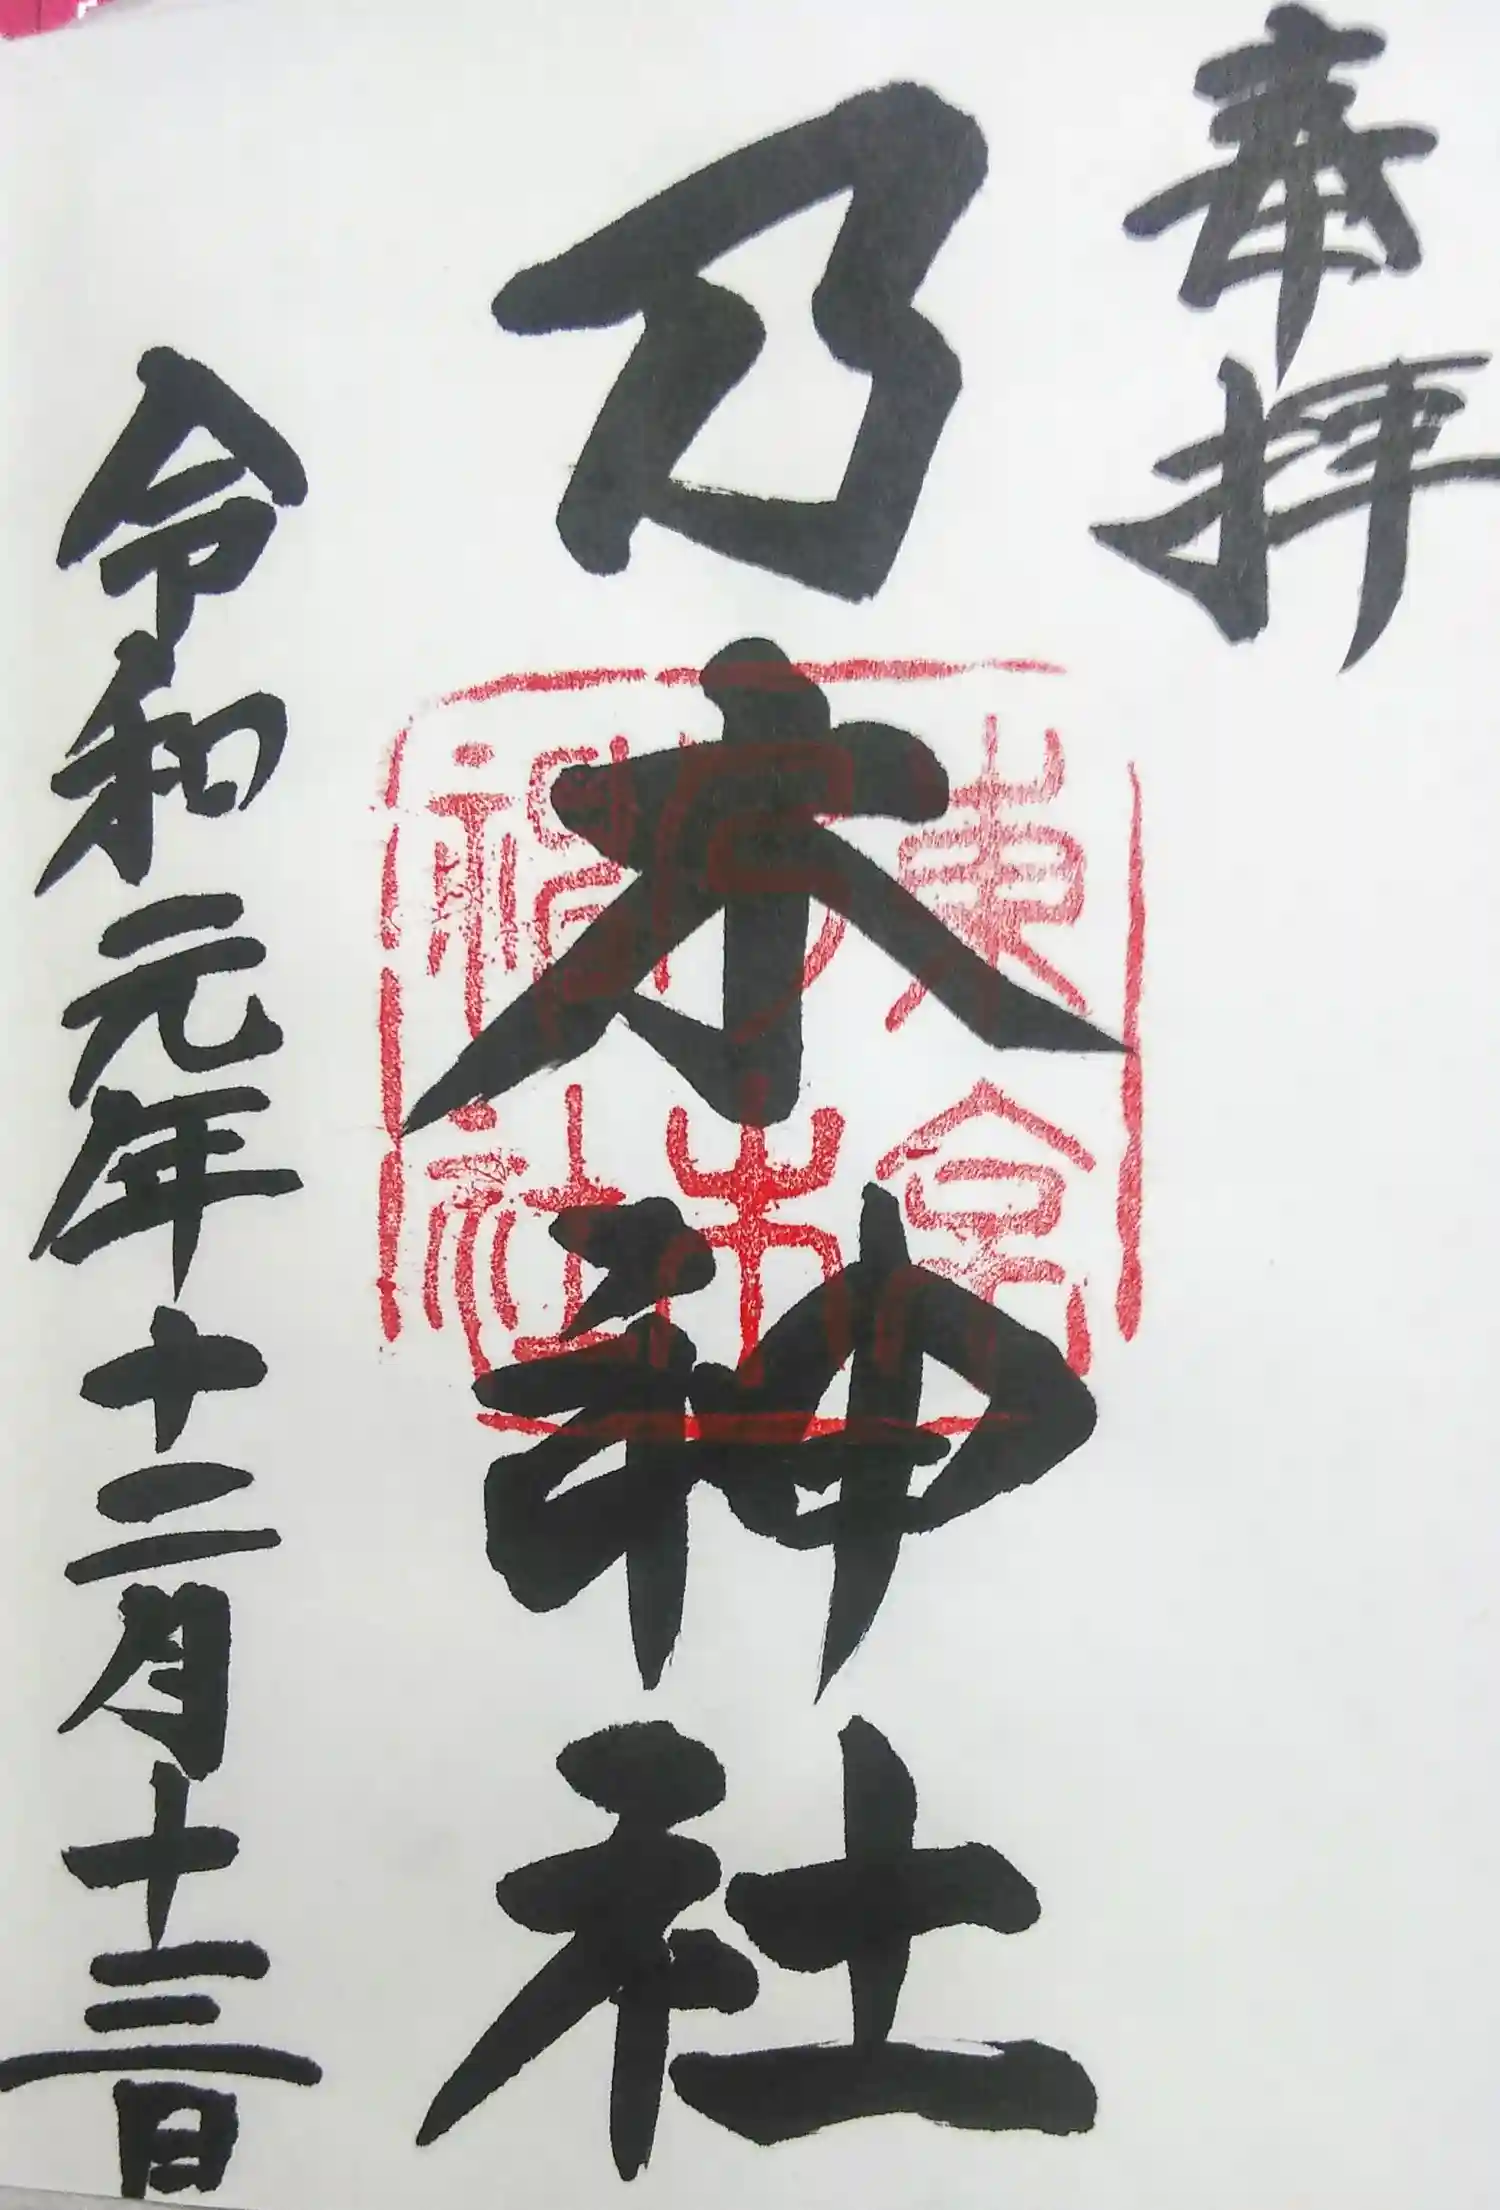 奉拝
乃木神社
東京
乃木
神社
令和元年十二月十三日